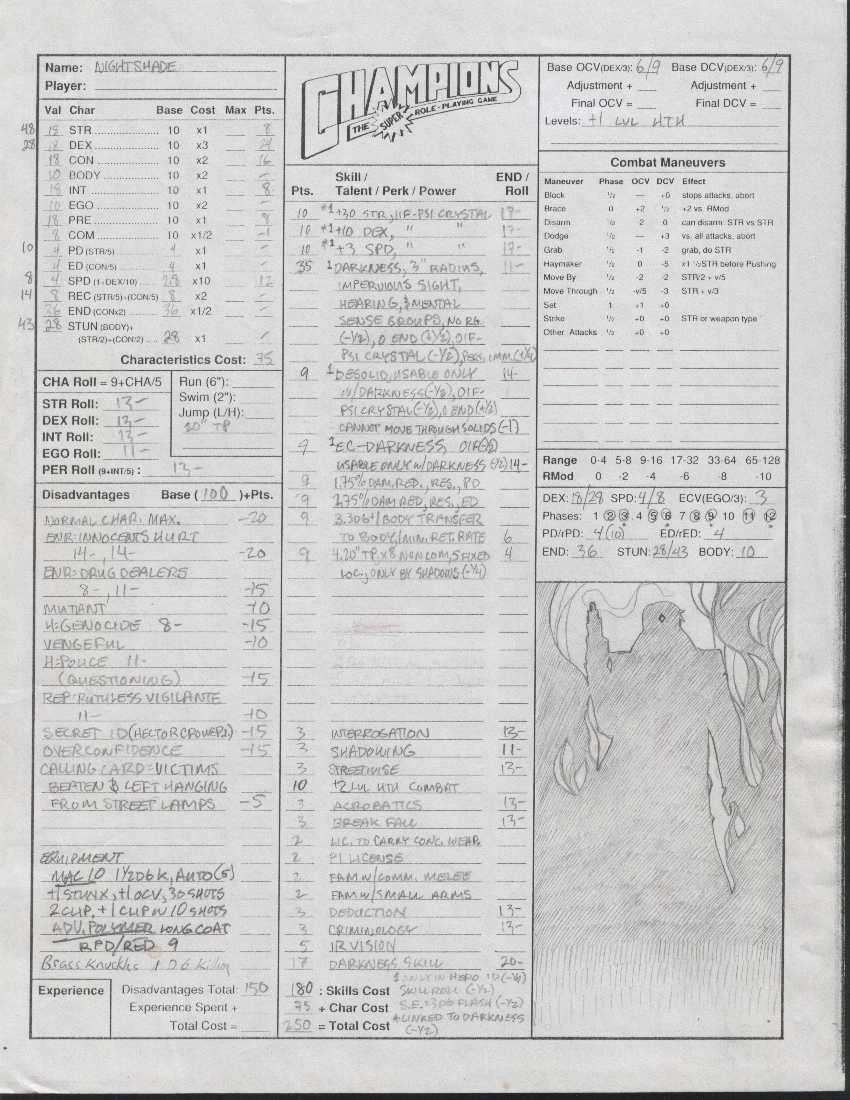 Name: NIGHTSHADE
Player:
Val Char Base Cost Max Pts.
48 18 STR 10 x1 8
28 18 DEX 10 x3 24
18 CON 10 x2 16
10 BODY 10 x2 -
18 INT 10 x1 8
10 EGO 10 x2 -
18 PRE 10 x1 8
8 COM 10 x1/2 -1
10 4 PD (STR/5) 4 x1 -
4 ED (CON/5) 4 x1 -
8 4 SPD (1+DEX/10) 2.8 x10 12
14 8 REC (STR/5)+(CON/5) 8 x2 -
36 END (CONx2) 36 x1/2 -
43 28 STUN (BODY)+
(STR/2)+(CON/2) 28 x1 -
Characteristics Cost: 75
CHA Roll = 9+CHA/5
STR Roll: 13-
DEX Roll: 13-
INT Roll: 13-
EGO Roll: 11-
PER Roll (9+INT/5) : 13-
Run (6"):
Swim (2"):
Jump (L/H):
20" TP
Disadvantages Base (100)+Pts.
NORMAL CHAR. MAX. -20
ENR: INNOCENTS HURT
14-, 14- -20
ENR: DRUG DEALERS
8-, 11- -15
MUTANT -10
H: GENOCIDE 8- -15
VENGEFUL -10
H: POLICE 11-
(QUESTIONING) -15
REP: RUTHLESS VIGILANTE
11- -10
SECRET ID (HECTOR) -15
OVERCONFIDENCE -15
CALLING CARD: VICTIMS
BEATEN & LEFT HANGING
FROM STREET LAMPS -5
EQUIPMENT
MAC 10 1 1/2D6 K, AUTO (5)
+1 STUNX, +1 OCV, 30 SHOTS
2 CLIP, +1 CLIP W/ 10 SHOTS
ADV. POLYMER LONG COAT
RPD/RED 9
Brass Knuckles 1 D6 Killing
Experience
Disadvantages Total: 150
Experience Spent +
Total Cost =
CHAMPIONS
THE SUPER ROLE-PLAYING GAME
Skill / END /
Pts. Talent / Perk / Power Roll
10 #1 +30 STR, IIF-PSI CRYSTAL 17-
10 #1 +10 DEX, " " 17-
10 #1 +3 SPD, " " 17-
35 1 DARKNESS, 3" RADIUS, 11-
IMPERVIOUS SIGHT,
HEARING, & MENTAL
SENSE GROUPS, NO RG.
(-1/2), 0 END (+1/2), OIF-
PSI CRYSTAL (-1/2), PERS. IMM. (+1/4)
9 1 DESOLID, USABLE ONLY 14-
W/DARKNESS (-1/2), OIF-
PSI CRYSTAL (-1/2), 0 END (+1/2)
CANNOT MOVE THROUGH SOLIDS (-1)
9 1 EC-DARKNESS, OIF (-1/2)
USABLE ONLY W/DARKNESS (-1/2) 14-
9 1. 75% DAM. RED., RES., PD
9 2. 75% DAM RED, RES., ED
9 3. 3D6+1 BODY TRANSFER
TO BODY/MIN. RET. RATE 6
9 4. 20" TP, x8 NONCOM, 5 FIXED 4
LOC., ONLY BY SHADOWS (-1/4)
3 INTERROGATION 13-
3 SHADOWING 11-
3 STREETWISE 13-
10 +2 LVL HTH COMBAT
3 ACROBATICS 13-
3 BREAK FALL 13-
2 LIC. TO CARRY CONC. WEAP.
2 PI LICENSE
2 FAM W/COMM. MELEE
2 FAM W/SMALL ARMS
3 DEDUCTION 13-
3 CRIMINOLOGY 13-
5 IR VISION
17 DARKNESS SKILL 20-
1 ONLY IN HERO ID (-1/4)
180 : Skills Cost SKILL ROLL (-1/2)
75 + Char Cost S.E. 3D6 FLASH (-1/2)
250 = Total Cost # LINKED TO DARKNESS
(-1/2)
Base OCV(DEX/3): 6/9 Base DCV(DEX/3): 6/9
Adjustment + Adjustment +
Final OCV = Final DCV =
Levels: +1 LVL HTH
Combat Maneuvers
Maneuver Phase OCV DCV Effect
Block 1/2 — +0 stops attacks, abort
Brace 0 +2 1/2 +2 vs. RMod
Disarm 1/2 -2 0 can disarm: STR vs STR
Dodge 1/2 — +3 vs. all attacks, abort
Grab 1/2 -1 -2 grab, do STR
Haymaker 1/2 0 -5 x1 1/2 STR before Pushing
Move By 1/2 -2 -2 STR/2 + v/5
Move Through 1/2 -v/5 -3 STR + v/3
Set 1 +1 +0
Strike 1/2 +0 +0 STR or weapon type
Other Attacks 1/2 +0 +0
Range 0-4 5-8 9-16 17-32 33-64 65-128
RMod 0 -2 -4 -6 -8 -10
DEX: 18/28 SPD: 4/8 ECV(EGO/3): 3
Phases: 1 2 3 4 5 6 7 8 9 10 11 12
PD/rPD: 4(10) ED/rED: 4
END: 36 STUN: 28/43 BODY: 10